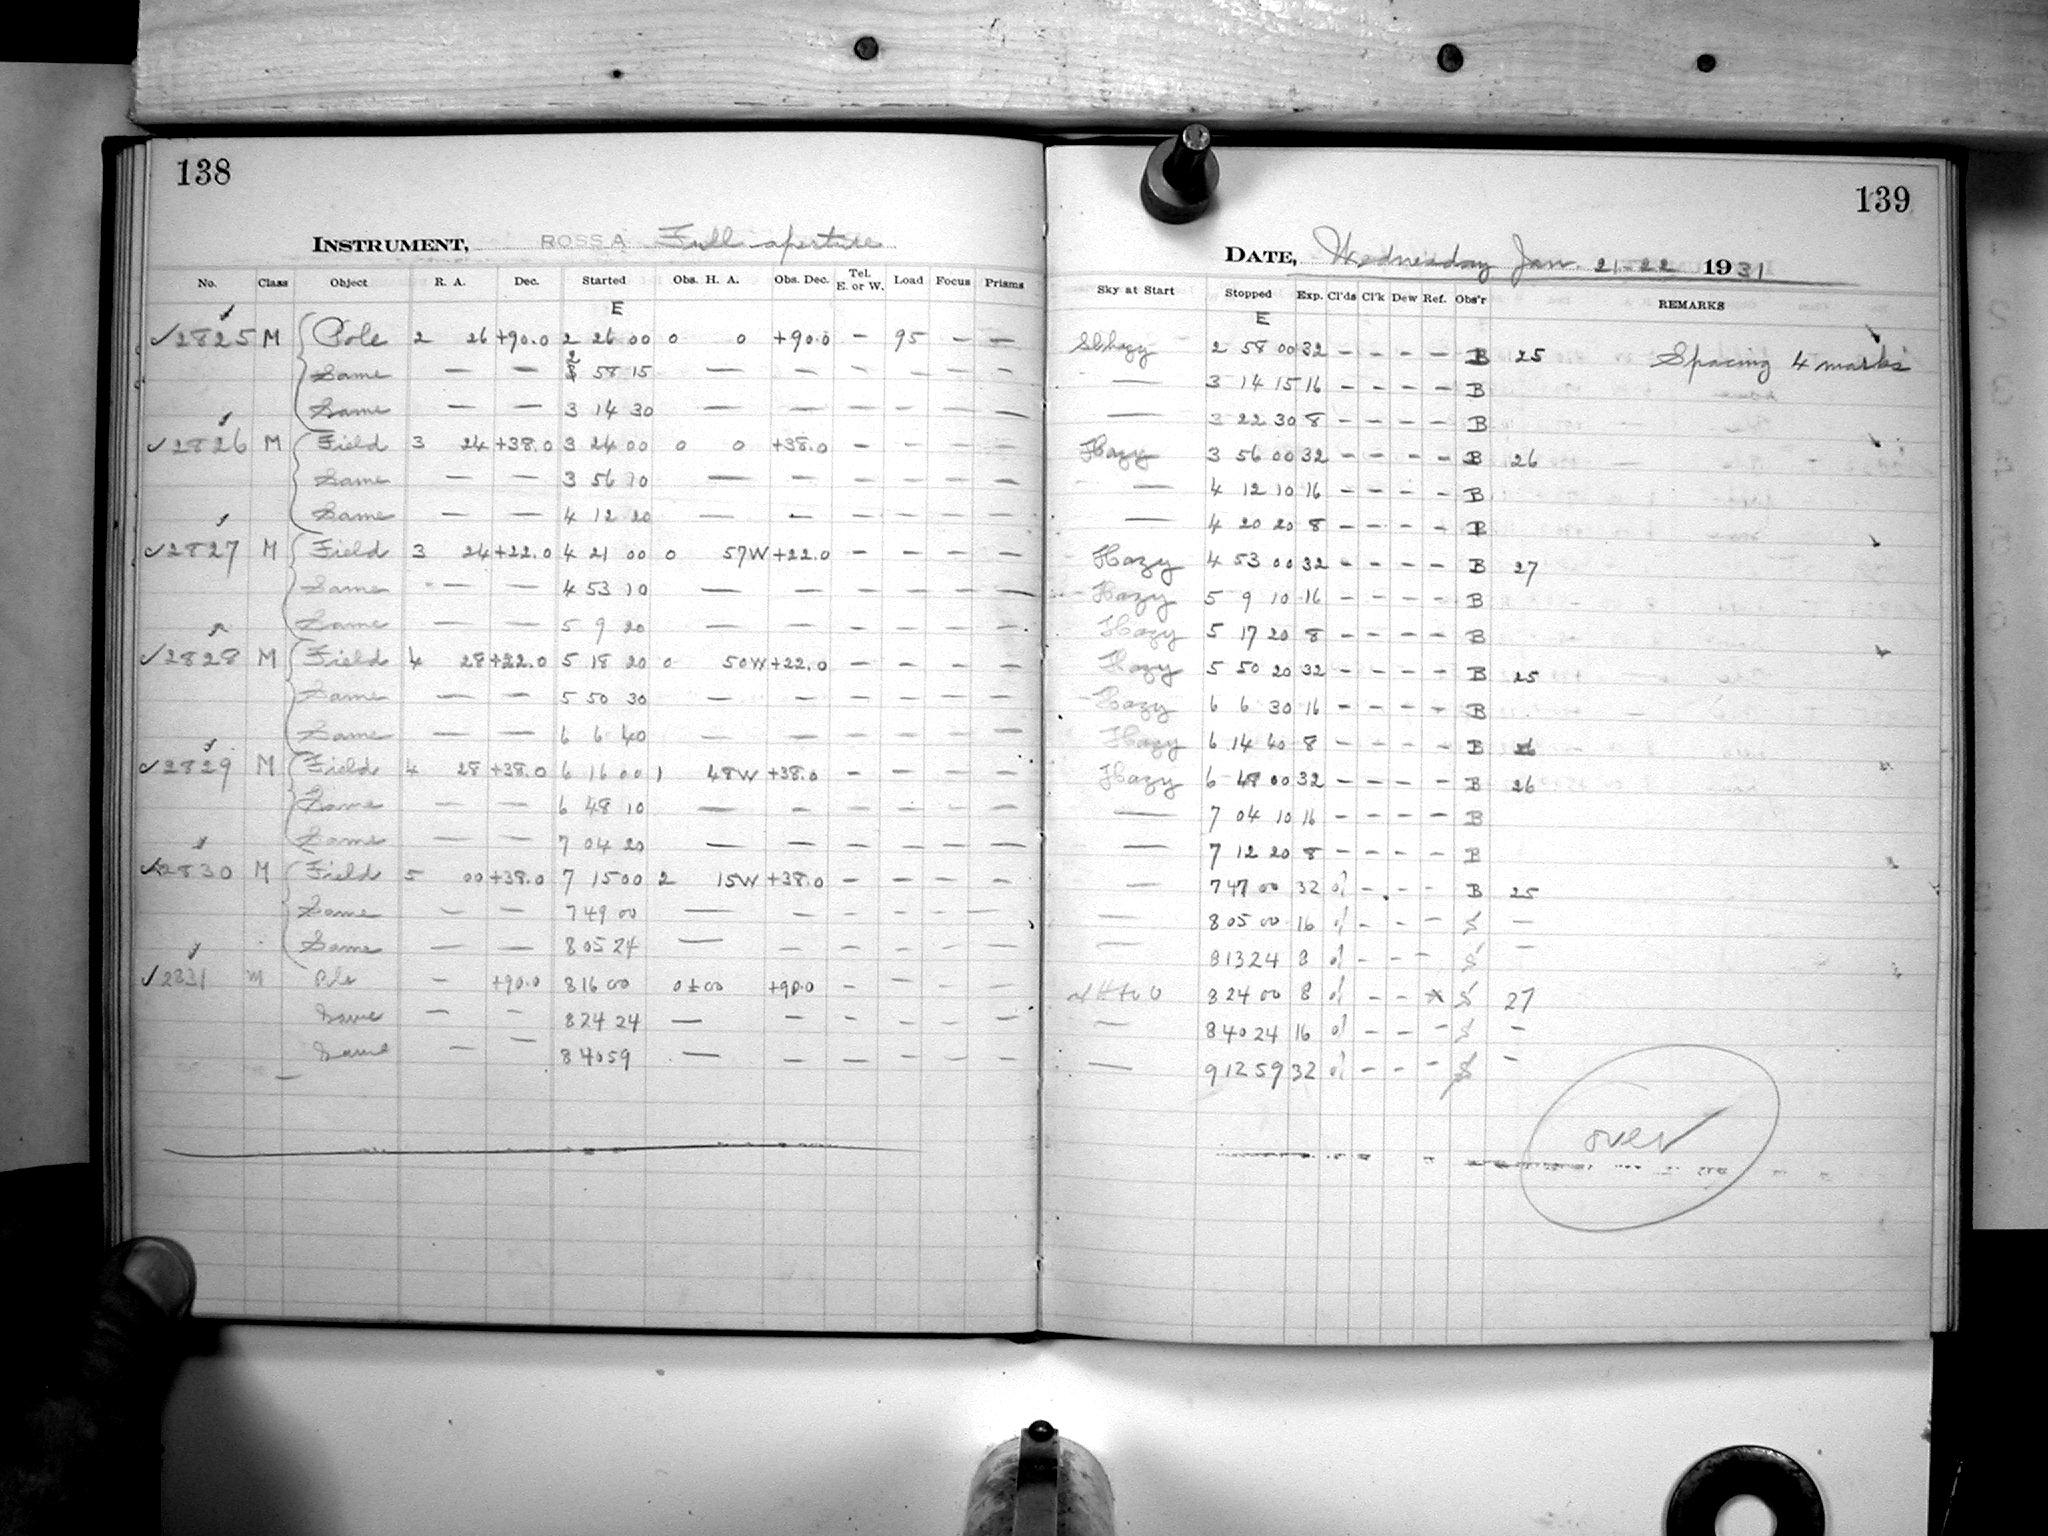 138
INSTRUMENT, ROSS A Full aperture
No. Class Object R. A. Dec. Started Obs. H. A. Obs. Dec. Tel. E. or W. Load Focus Prisms
E
✓2825 M Pole 2 26 +90.0 2 26 00 0 0 +90.0 – 95 – –
Same — — 2 58 15 — — – – – –
Same — — 3 14 30 — — – – – –
✓2826 M Field 3 24 +38.0 3 24 00 0 0 +38.0 – – – –
Same — — 3 56 10 — — – – – –
Same — — 4 12 20 — — – – – –
✓2827 M Field 3 24 +22.0 4 21 00 0 57W +22.0 – – – –
Same — — 4 53 10 — — – – – –
Same — — 5 9 20 — — – – – –
✓2828 M Field 4 28 +22.0 5 18 20 0 50W +22.0 – – – –
Same — — 5 50 30 — — – – – –
Same — — 6 6 40 — — – – – –
✓2829 M Field 4 28 +38.0 6 16 00 1 48W +38.0 – – – –
Same — — 6 48 10 — — – – – –
Same — — 7 04 20 — — – – – –
✓2830 M Field 5 00 +38.0 7 15 00 2 15W +38.0 – – – –
Same — — 7 49 00 — — – – – –
Same — — 8 05 24 — — – – – –
✓2831 M Pole – +90.0 8 16 00 0±00 +90.0 – – – –
Same — — 8 24 24 — — – – – –
Same — — 8 40 59 — — – – – –
139
DATE, Wednesday Jan. 21-22 1931
Sky at Start Stopped Exp. Cl'ds Cl'k Dew Ref. Obs'r REMARKS
E
Sl hazy 2 58 00 32 – – – – B 25 Spacing 4 marks
— 3 14 15 16 – – – – B
— 3 22 30 8 – – – – B
Hazy 3 56 00 32 – – – – B 26
— 4 12 10 16 – – – – B
— 4 20 20 8 – – – – B
Hazy 4 53 00 32 – – – – B 27
Hazy 5 9 10 16 – – – – B
Hazy 5 17 20 8 – – – – B
Hazy 5 50 20 32 – – – – B 25
Hazy 6 6 30 16 – – – – B
Hazy 6 14 40 8 – – – – B
Hazy 6 48 00 32 – – – – B 26
— 7 04 10 16 – – – – B
— 7 12 20 8 – – – – B
— 7 47 00 32 – – – B 25
— 8 05 00 16 – – – S —
— 8 13 24 8 – – – S —
8 24 00 8 – – S 27
— 8 40 24 16 – – – S —
— 9 12 59 32 – – – S —
over